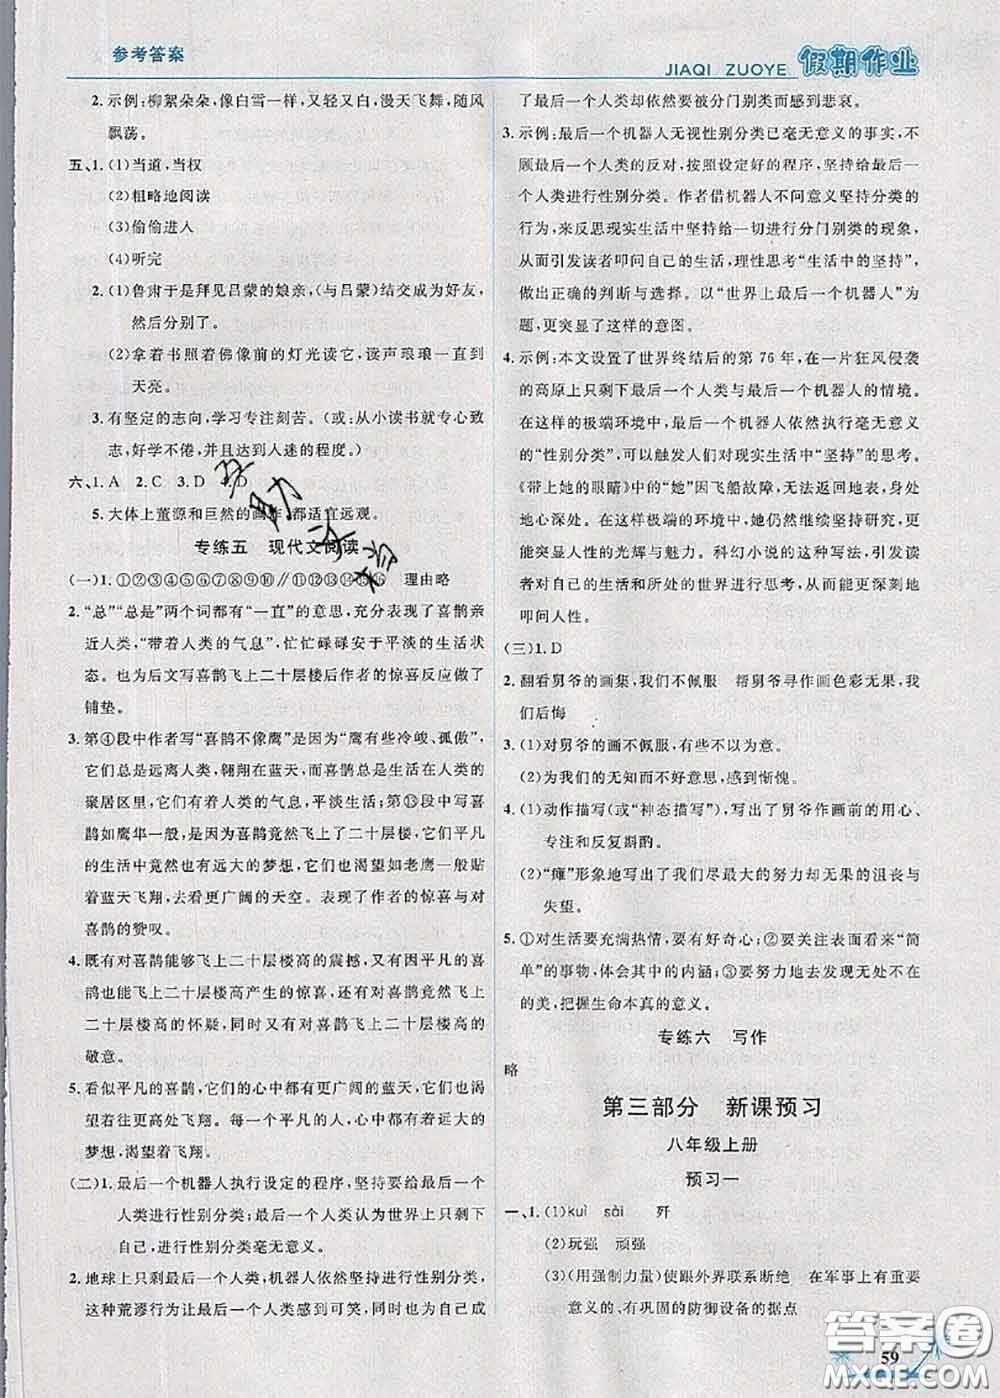 参考答案
JIAQI ZUOYE 假期作业
2. 示例:柳絮朵朵,像白雪一样,又轻又白,漫天飞舞,随风
飘荡。
五、1. (1)当道,当权
(2)粗略地阅读
(3)偷偷进入
(4)听完
2. (1)鲁肃于是拜见吕蒙的娘亲,(与吕蒙)结交成为好友,
然后分别了。
(2)拿着书照着佛像前的灯光读它,读声琅琅一直到
天亮。
3. 有坚定的志向,学习专注刻苦。(或:从小读书就专心致
志,好学不倦,并且达到入迷的程度。)
六、1. A 2. C 3. D D
5. 大体上董源和巨然的画作,都适宜远观。
专练五 现代文阅读
(一)1. ①②③④⑤⑥⑦⑧⑨⑩//⑪⑫⑬⑭⑮⑯ 理由略
2. “总”“总是”两个词都有“一直”的意思,充分表现了喜鹊亲
近人类,“带着人类的气息”,忙忙碌碌安于平淡的生活状
态。也为后文写喜鹊飞上二十层楼后作者的惊喜反应做了
铺垫。
3. 第④段中作者写“喜鹊不像鹰”是因为“鹰有些冷峻、孤傲”,
它们总是远离人类,翱翔在蓝天,而喜鹊总是生活在人类的
聚居区里,它们有着人类的气息,平淡生活;第⑬段中写喜
鹊如鹰隼一般,是因为喜鹊竟然飞上了二十层楼,它们平凡
的生活中竟然也有远大的梦想,它们也渴望如老鹰一般贴
着蓝天飞翔,去看更广阔的天空。表现了作者的惊喜与对
喜鹊的赞叹。
4. 既有对喜鹊能够飞上二十层楼高的震撼,又有因平凡的喜
鹊也能飞上二十层楼高产生的惊喜,还有对喜鹊竟然飞上
二十层楼高的怀疑,同时又有对喜鹊飞上二十层楼高的
敬意。
5. 看似平凡的喜鹊,它们的心中都有更广阔的蓝天,它们也渴
望往更高处飞翔。每一个平凡的人,心中都有更加远大的
梦想,渴望着飞翔。
(二)1. 最后一个机器人执行设定的程序,坚持要给最后一个
人类进行性别分类;最后一个人类却认为世界上只剩下
自己,进行性别分类毫无意义。
2. 地球上只剩最后一个人类,机器人依然坚持进行性别分类,
这种荒谬行为让最后一个人类感到可笑,同时又为自己成
了最后一个人类却依然要被分门别类而感到悲哀。
3. 示例:最后一个机器人无视性别分类已毫无意义的事实,不
顾最后一个人类的反对,按照设定好的程序,坚持给最后一
个人类进行性别分类。作者借机器人不问意义坚持分类的
行为,来反思现实生活中坚持给一切进行分门别类的现象,
从而引发读者叩问自己的生活,理性思考“生活中的坚持”,
做出正确的判断与选择。以“世界上最后一个机器人”为
题,更突显了这样的意图。
4. 示例:本文设置了世界终结后的第 76 年,在一片狂风侵袭
的高原上只剩下最后一个人类与最后一个机器人的情境。
在这样的极端环境中,最后一个机器人依然执行毫无意义
的“性别分类”,可以触发人们对现实生活中“坚持”的思考。
《带上她的眼睛》中的“她”因飞船故障,无法返回地表,身处
地心深处。在这样极端的环境中,她仍然继续坚持研究,更
突显人性的光辉与魅力。科幻小说的这种写法,引发读者
者对自己的生活和所处的世界进行思考,从而能更深刻地
叩问人性。
(三)1. D
2. 翻看舅爷的画集,我们不佩服 帮舅爷寻作画色彩无果,我
们后悔
3. (1)对舅爷的画不佩服,有些不以为意。
(2)为我们的无知而不好意思,感到惭愧。
4. (1)动作描写(或“神态描写”),写出了舅爷作画前的用心、
专注和反复斟酌。
(2)“瘫”形象地写出了我们尽最大的努力却无果的沮丧与
失望。
5. ①对生活要充满热情,要有好奇心;②要关注表面看“简
单”的事物,体会其中的内涵;③要努力地去发现无处不在
的美,把握生命本真的意义。
专练六 写作
略
第三部分 新课预习
八年级上册
预习一
一、1. (1)kuì sài 歼
(2)玩强 顽强
(3)(用强制力量)使跟外界联系断绝 在军事上有重要
意义的、有巩固的防御设备的据点
59
答案圈
MXQE.COM